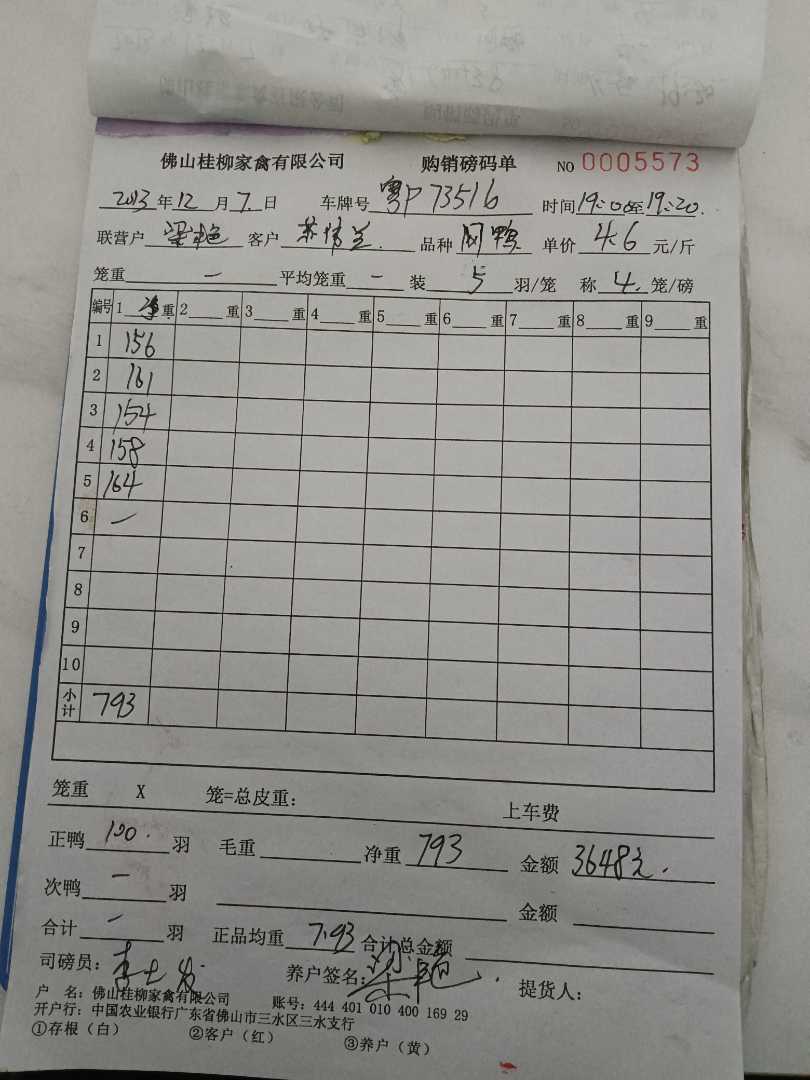 佛山桂柳家禽有限公司 购销磅码单 NO 0005573
2013年12月7日 车牌号 粤P73516 时间19:06至19:20.
联营户 客户 品种 单价 4.6 元/斤
笼重 一 平均笼重 一 装 5 羽/笼 称 4. 笼/磅
编号 1 净 重 2 重 3 重 4 重 5 重 6 重 7 重 8 重 9 重
1 156
2 161
3 154
4 158
5 164
6 一
7
8
9
10
小计 793
笼重 X 笼=总皮重: 上车费
正鸭 100. 羽 毛重 净重 793 金额 3648元.
次鸭 一 羽 金额
合计 一 羽 正品均重 7.93 合计总金额
司磅员: 养户签名: 提货人:
户 名: 佛山桂柳家禽有限公司 账号: 444 401 010 400 169 29
开户行: 中国农业银行广东省佛山市三水区三水支行
①存根(白) ②客户(红) ③养户(黄)